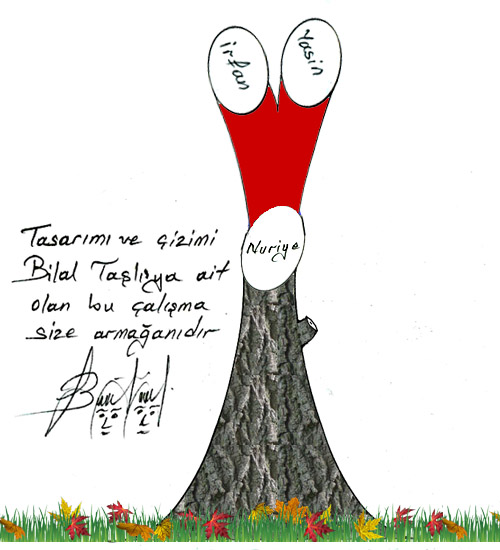 irfan
Yasin
Nuriye
Tasarımı ve çizimi
Bilal Taşlışya ait
olan bu çalışma
size armağanıdır